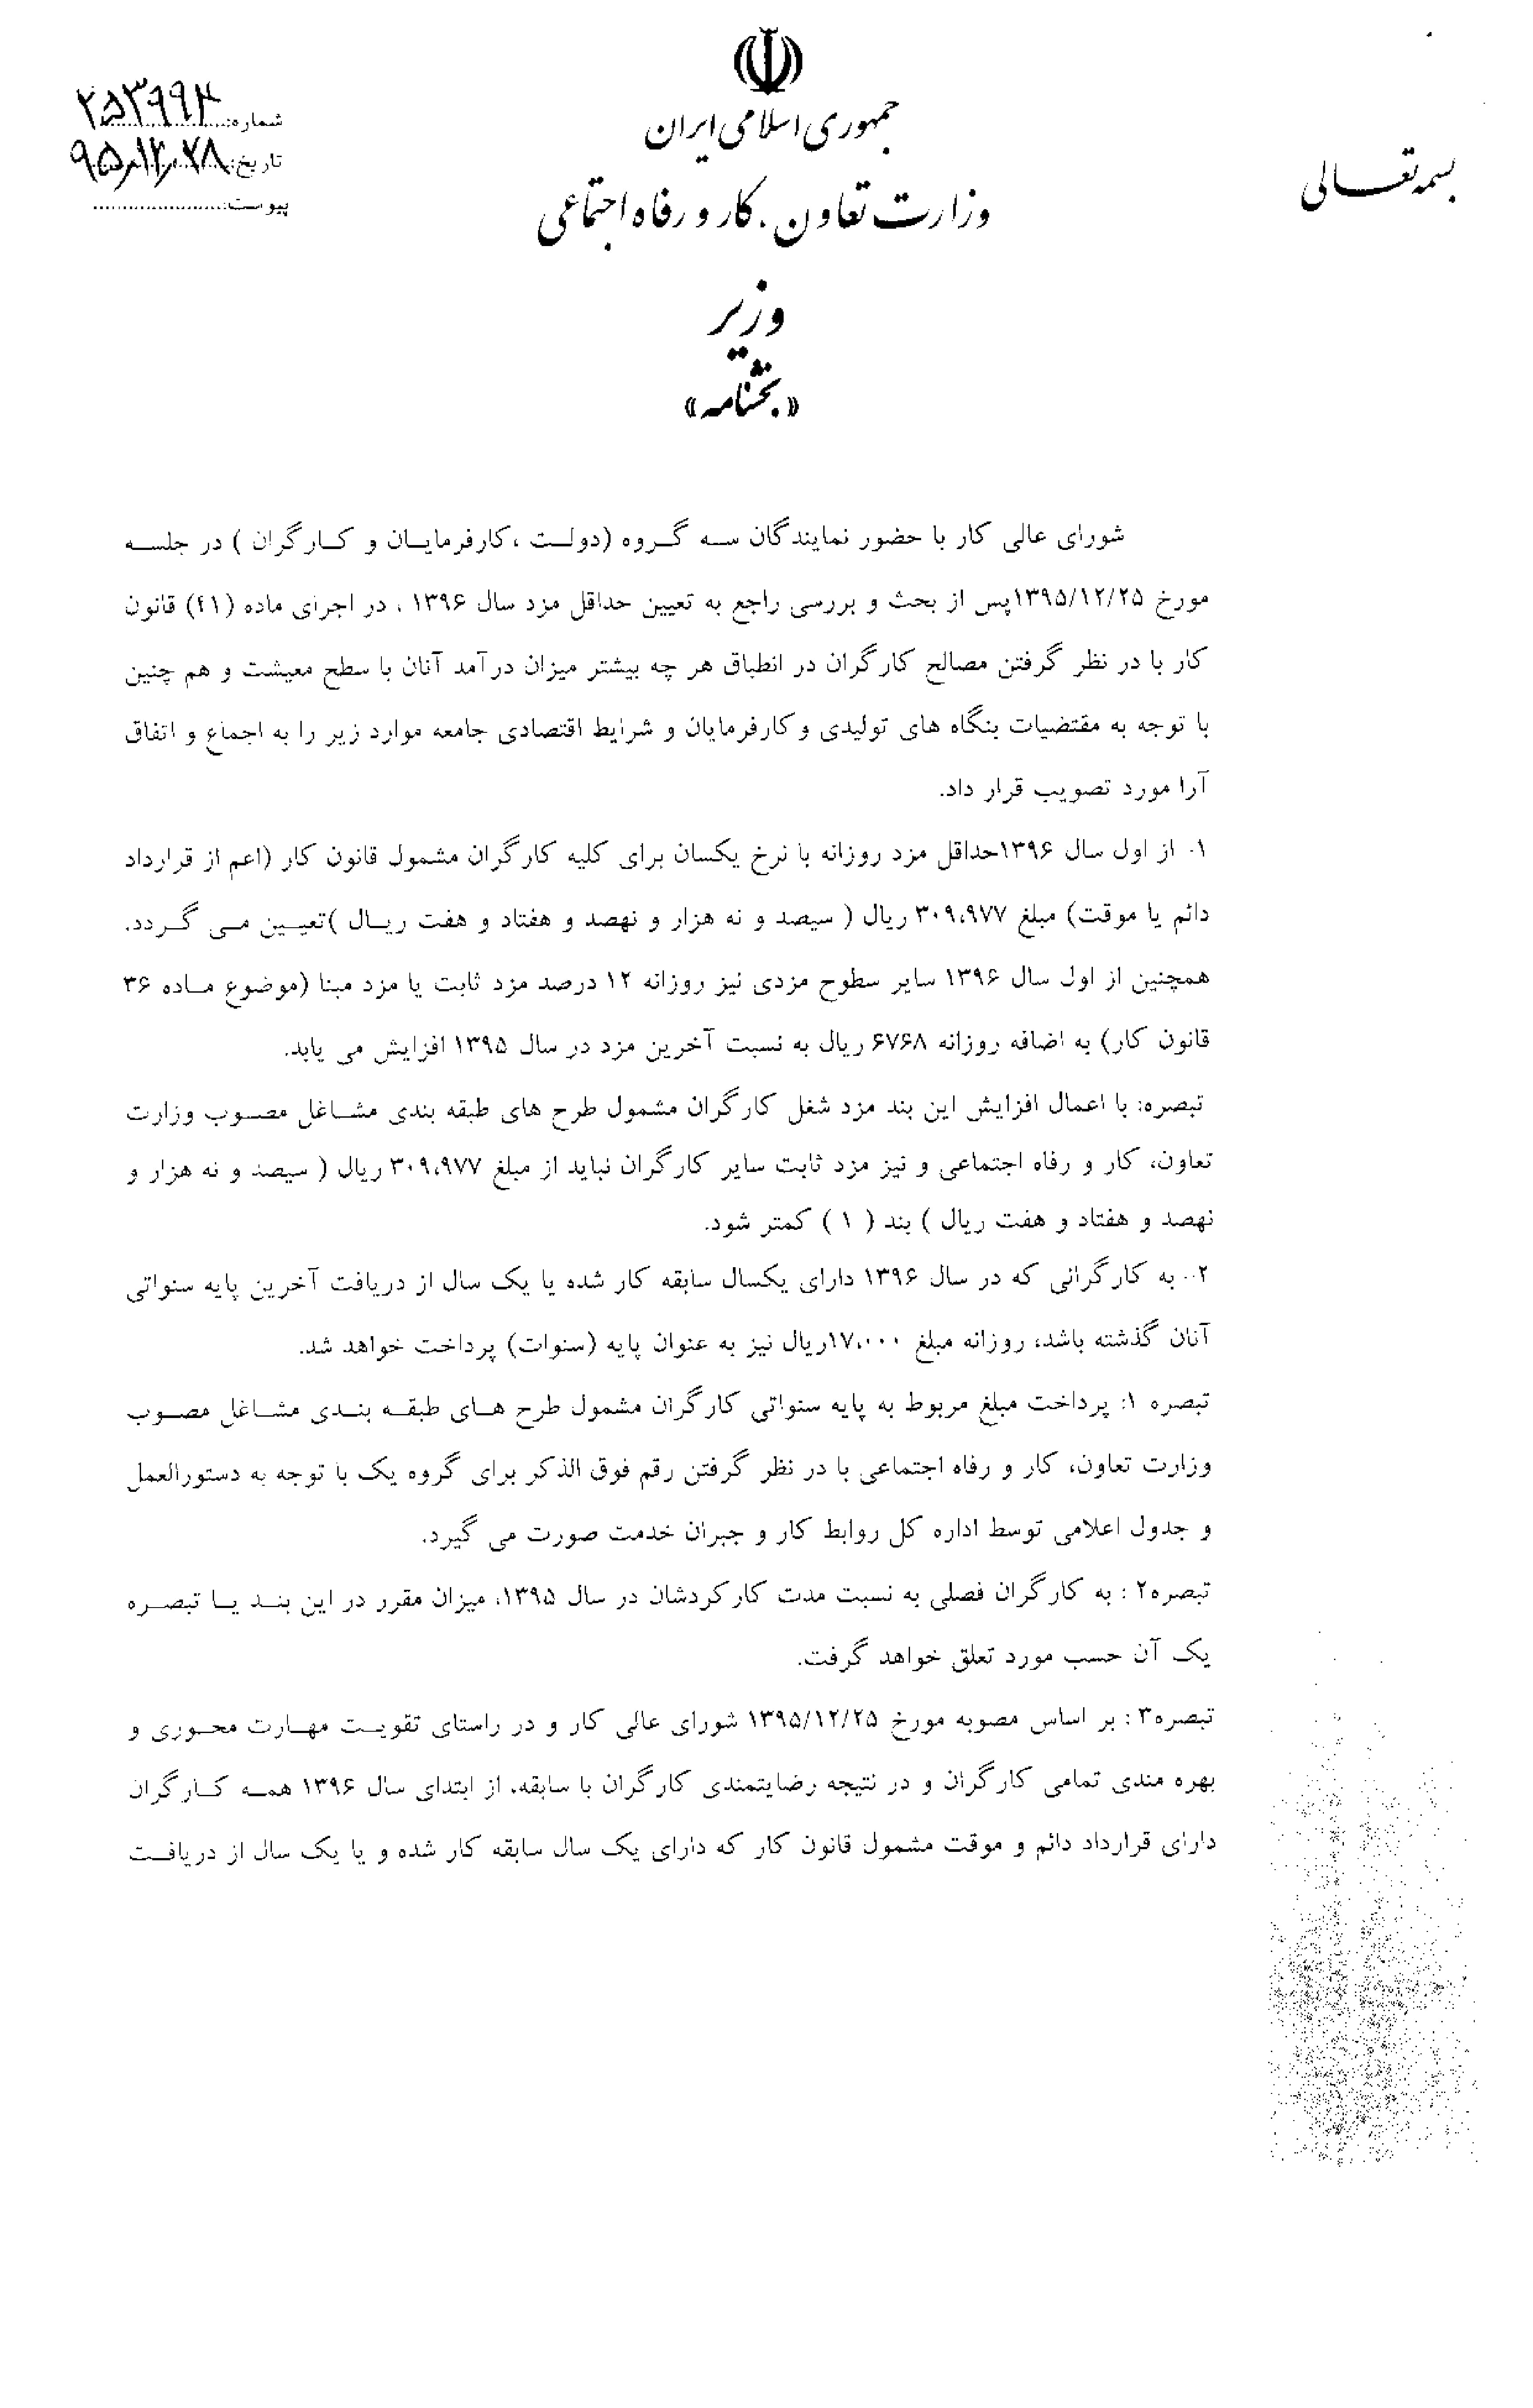 بسمه تعالی
جمهوری اسلامی ایران
وزارت تعاون، کار و رفاه اجتماعی
وزیر
«بخشنامه»
شماره: ۲۵۳۹۹۴
تاریخ: ۹۵٫۱۲٫۲۸
پیوست:
شورای عالی کار با حضور نمایندگان سه گروه (دولت ،کارفرمایان و کارگران ) در جلسه
مورخ ۱۳۹۵/۱۲/۲۵پس از بحث و بررسی راجع به تعیین حداقل مزد سال ۱۳۹۶ ، در اجرای ماده (۴۱) قانون
کار با در نظر گرفتن مصالح کارگران در انطباق هر چه بیشتر میزان درآمد آنان با سطح معیشت و هم چنین
با توجه به مقتضیات بنگاه های تولیدی و کارفرمایان و شرایط اقتصادی جامعه موارد زیر را به اجماع و اتفاق
آرا مورد تصویب قرار داد.
۱. از اول سال ۱۳۹۶حداقل مزد روزانه با نرخ یکسان برای کلیه کارگران مشمول قانون کار (اعم از قرارداد
دائم یا موقت) مبلغ ۳۰۹،۹۷۷ ریال ( سیصد و نه هزار و نهصد و هفتاد و هفت ریال )تعیین می گردد.
همچنین از اول سال ۱۳۹۶ سایر سطوح مزدی نیز روزانه ۱۲ درصد مزد ثابت یا مزد مبنا (موضوع ماده ۳۶
قانون کار) به اضافه روزانه ۶۷۶۸ ریال به نسبت آخرین مزد در سال ۱۳۹۵ افزایش می یابد.
تبصره: با اعمال افزایش این بند مزد شغل کارگران مشمول طرح های طبقه بندی مشاغل مصوب وزارت
تعاون، کار و رفاه اجتماعی و نیز مزد ثابت سایر کارگران نباید از مبلغ ۳۰۹،۹۷۷ ریال ( سیصد و نه هزار و
نهصد و هفتاد و هفت ریال ) بند ( ۱ ) کمتر شود.
۲- به کارگرانی که در سال ۱۳۹۶ دارای یکسال سابقه کار شده یا یک سال از دریافت آخرین پایه سنواتی
آنان گذشته باشد، روزانه مبلغ ۱۷،۰۰۰ریال نیز به عنوان پایه (سنوات) پرداخت خواهد شد.
تبصره ۱: پرداخت مبلغ مربوط به پایه سنواتی کارگران مشمول طرح های طبقه بندی مشاغل مصوب
وزارت تعاون، کار و رفاه اجتماعی با در نظر گرفتن رقم فوق الذکر برای گروه یک با توجه به دستورالعمل
و جدول اعلامی توسط اداره کل روابط کار و جبران خدمت صورت می گیرد.
تبصره۲ : به کارگران فصلی به نسبت مدت کارکردشان در سال ۱۳۹۵، میزان مقرر در این بند یا تبصره
یک آن حسب مورد تعلق خواهد گرفت.
تبصره۳ : بر اساس مصوبه مورخ ۱۳۹۵/۱۲/۲۵ شورای عالی کار و در راستای تقویت مهارت محوری و
بهره مندی تمامی کارگران و در نتیجه رضایتمندی کارگران با سابقه، از ابتدای سال ۱۳۹۶ همه کارگران
دارای قرارداد دائم و موقت مشمول قانون کار که دارای یک سال سابقه کار شده و یا یک سال از دریافت